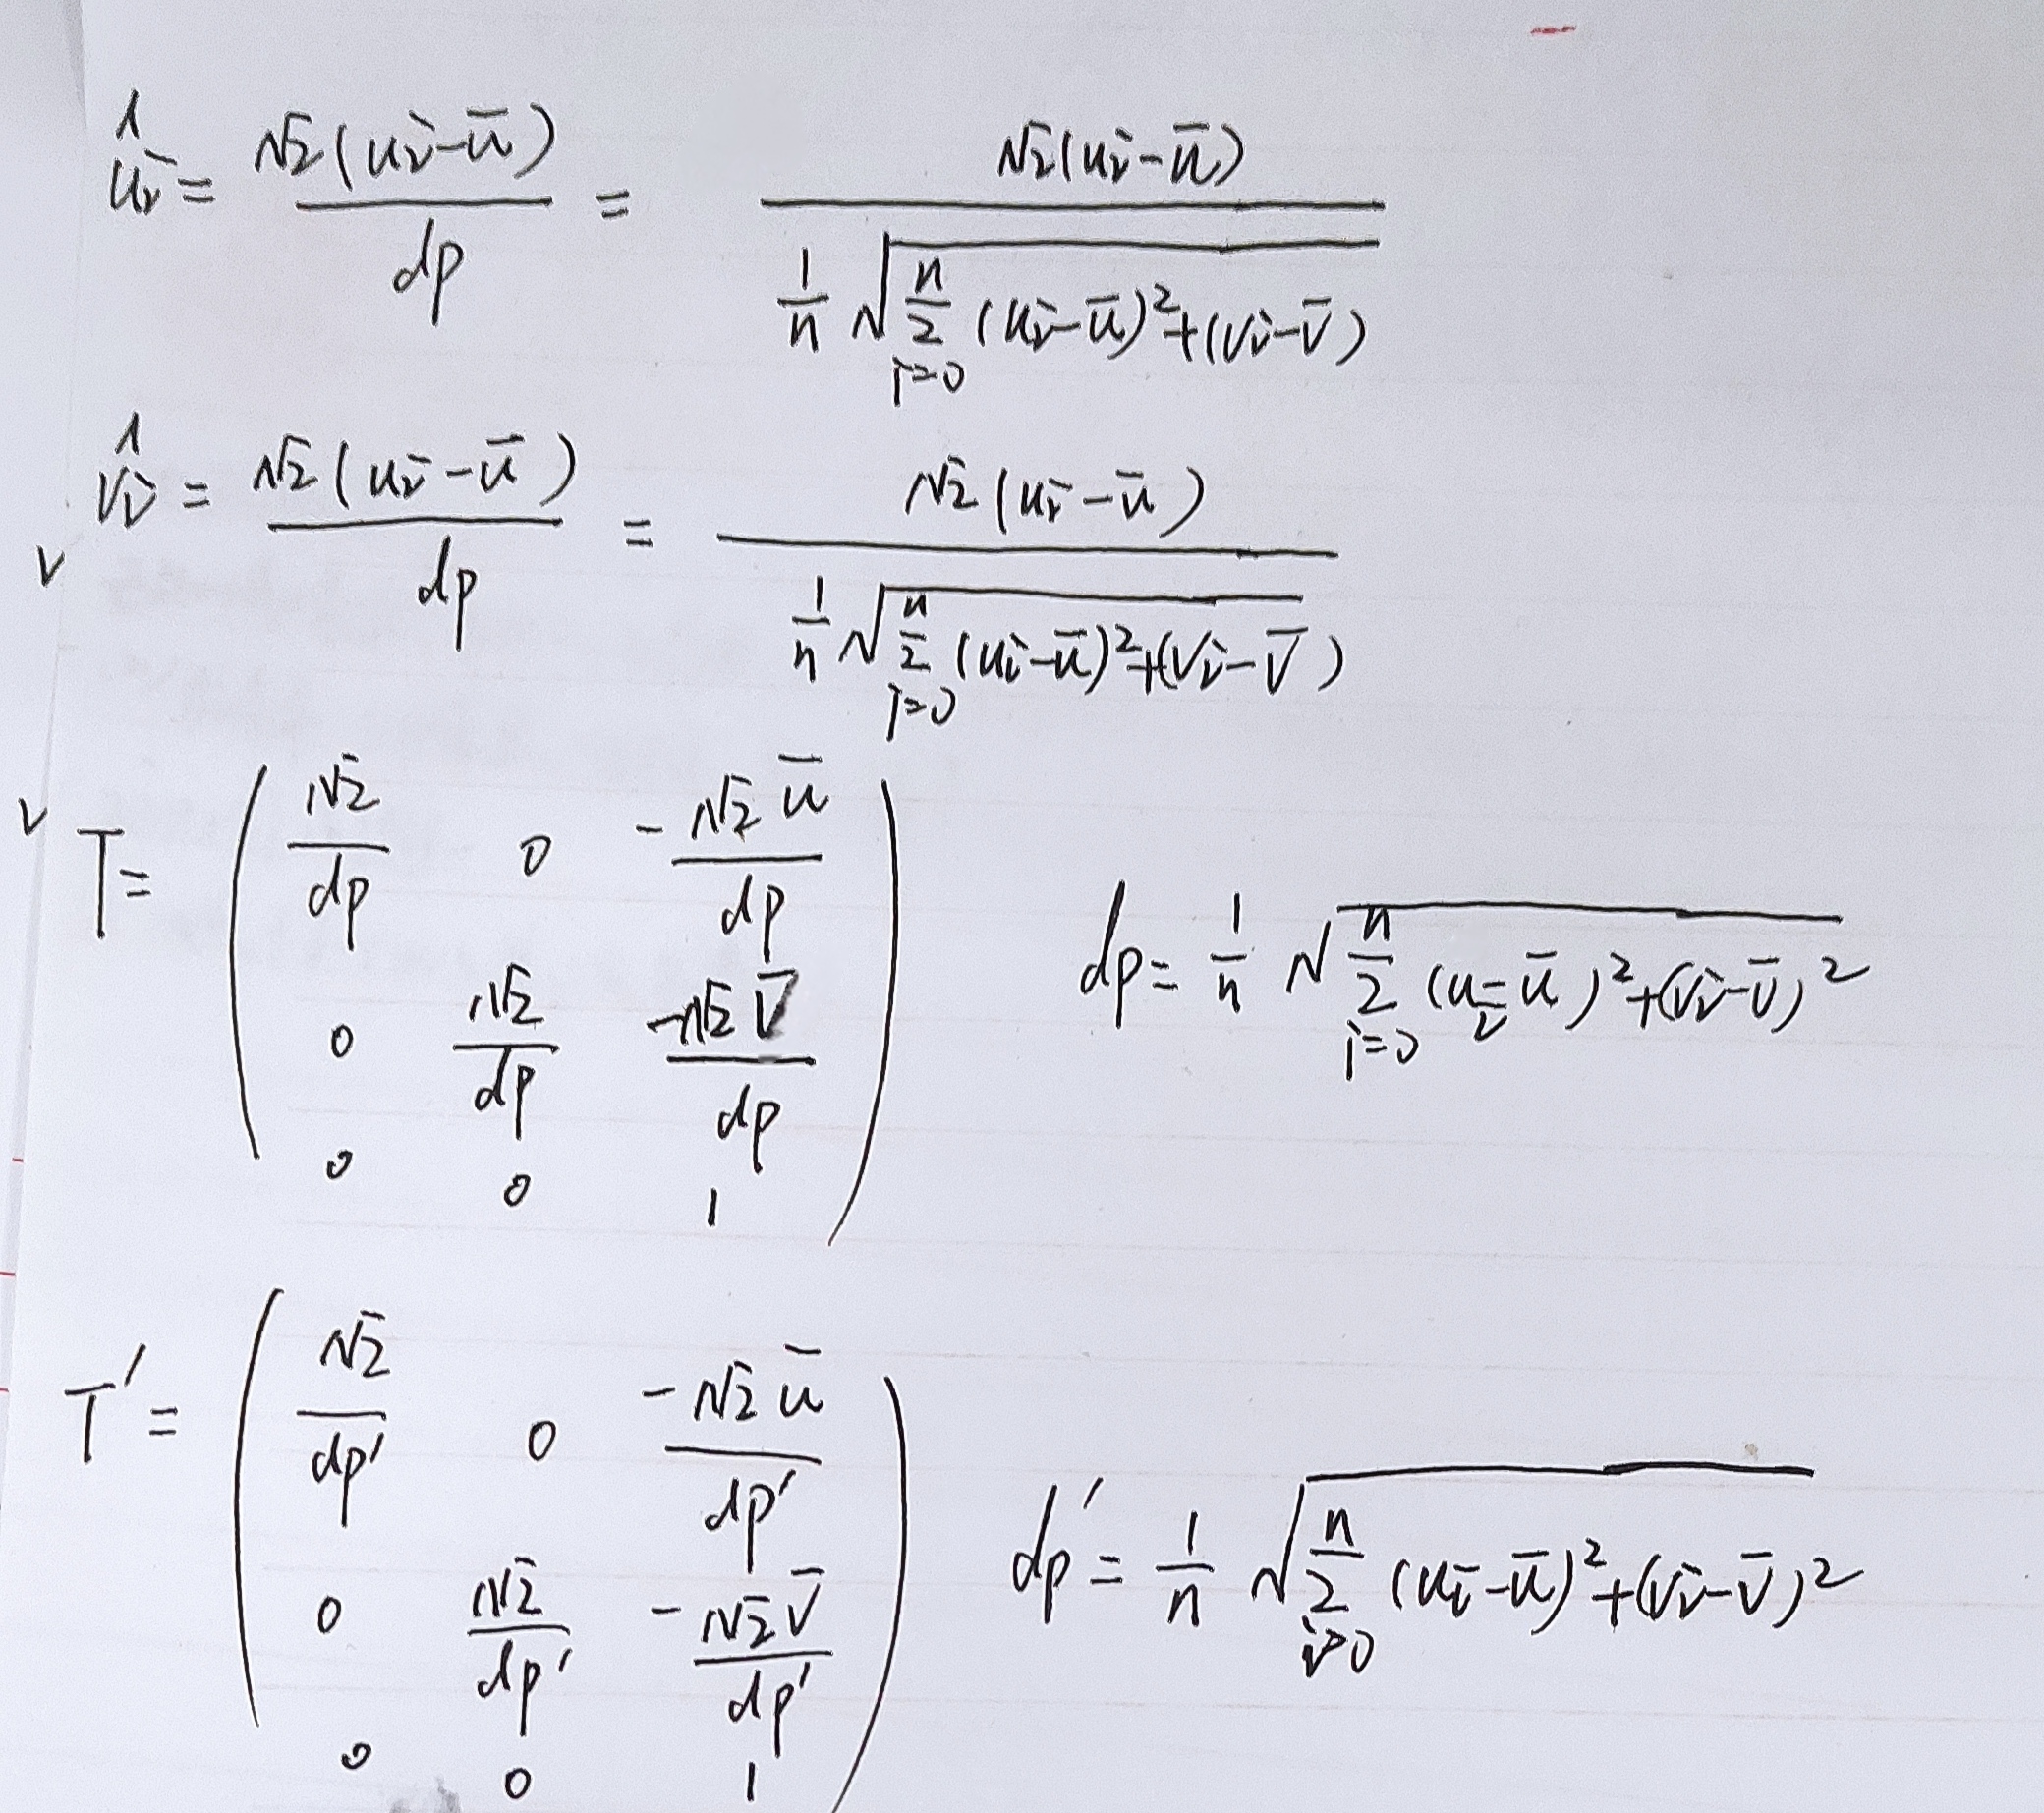 $\hat{u_i} = \frac{\sqrt{2}(u_i - \bar{u})}{dp} = \frac{\sqrt{2}(u_i - \bar{u})}{\frac{1}{n}\sqrt{\sum_{i=0}^{n}(u_i - \bar{u})^2 + (v_i - \bar{v})}}$
$\hat{v_i} = \frac{\sqrt{2}(u_i - \bar{u})}{dp} = \frac{\sqrt{2}(u_i - \bar{u})}{\frac{1}{n}\sqrt{\sum_{i=0}^{n}(u_i - \bar{u})^2 + (v_i - \bar{v})}}$
v
v $T = \begin{pmatrix} \frac{\sqrt{2}}{dp} & 0 & -\frac{\sqrt{2}\bar{u}}{dp} \\ 0 & \frac{\sqrt{2}}{dp} & \frac{-\sqrt{2}\bar{v}}{dp} \\ 0 & 0 & 1 \end{pmatrix}$ $dp = \frac{1}{n}\sqrt{\sum_{i=0}^{n}(u_i - \bar{u})^2 + (v_i - \bar{v})^2}$
$T' = \begin{pmatrix} \frac{\sqrt{2}}{dp'} & 0 & \frac{-\sqrt{2}\bar{u}}{dp'} \\ 0 & \frac{\sqrt{2}}{dp'} & -\frac{\sqrt{2}\bar{v}}{dp'} \\ 0 & 0 & 1 \end{pmatrix}$ $dp' = \frac{1}{n}\sqrt{\sum_{i=0}^{n}(u_i - \bar{u})^2 + (v_i - \bar{v})^2}$